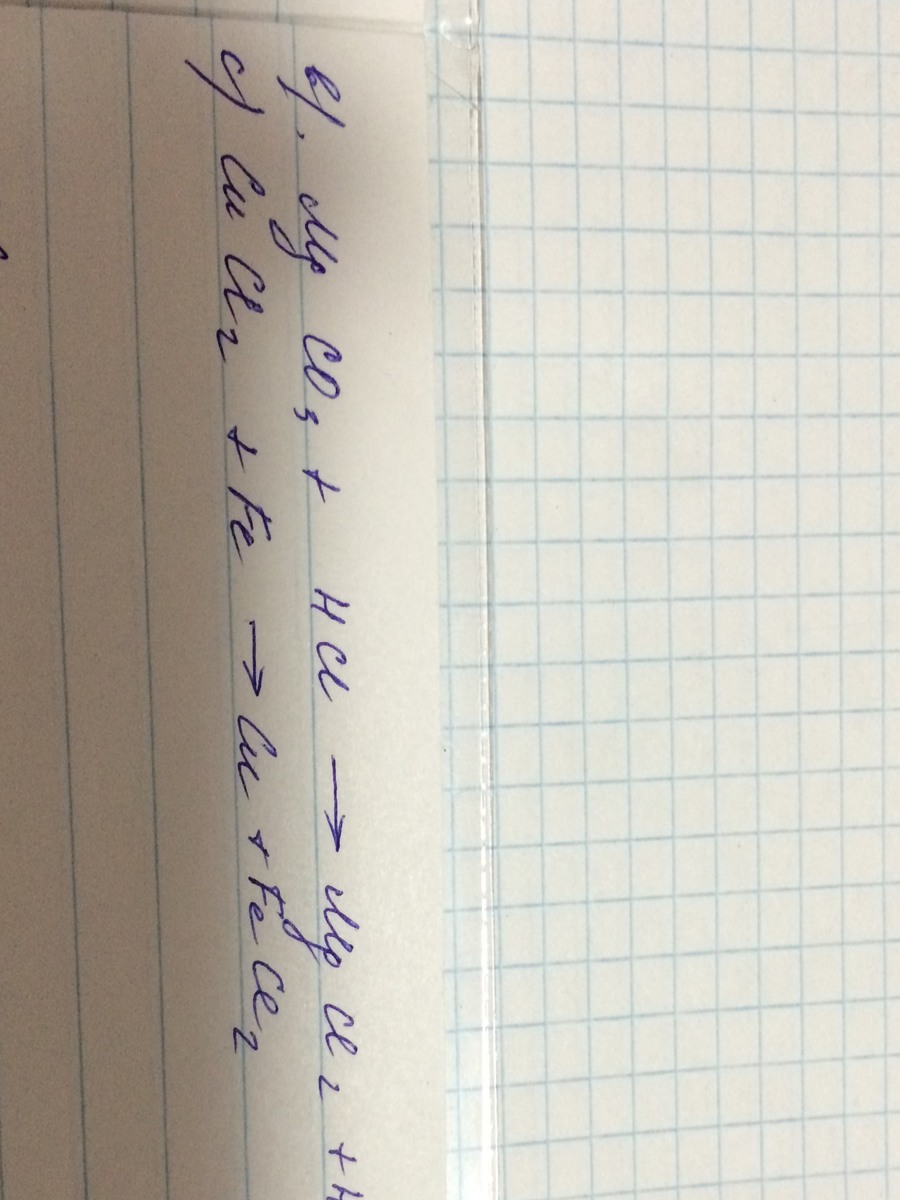 в). Mg CO₃ + HCl → Mg Cl₂ + H
c) Cu Cl₂ + Fe → Cu + Fe Cl₂